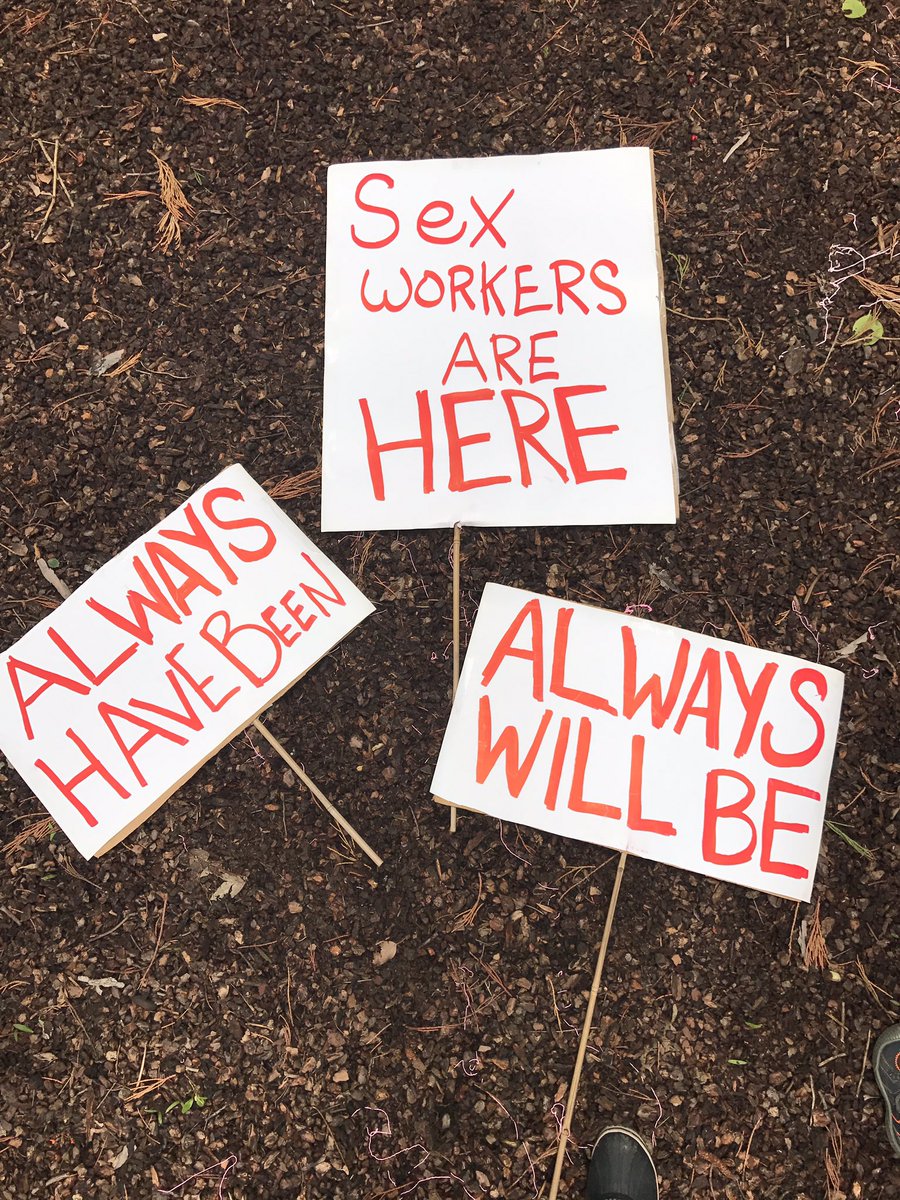 Sex
WORKERS
ARE
HERE
ALWAYS
HAVE BEEN
ALWAYS
WILL BE